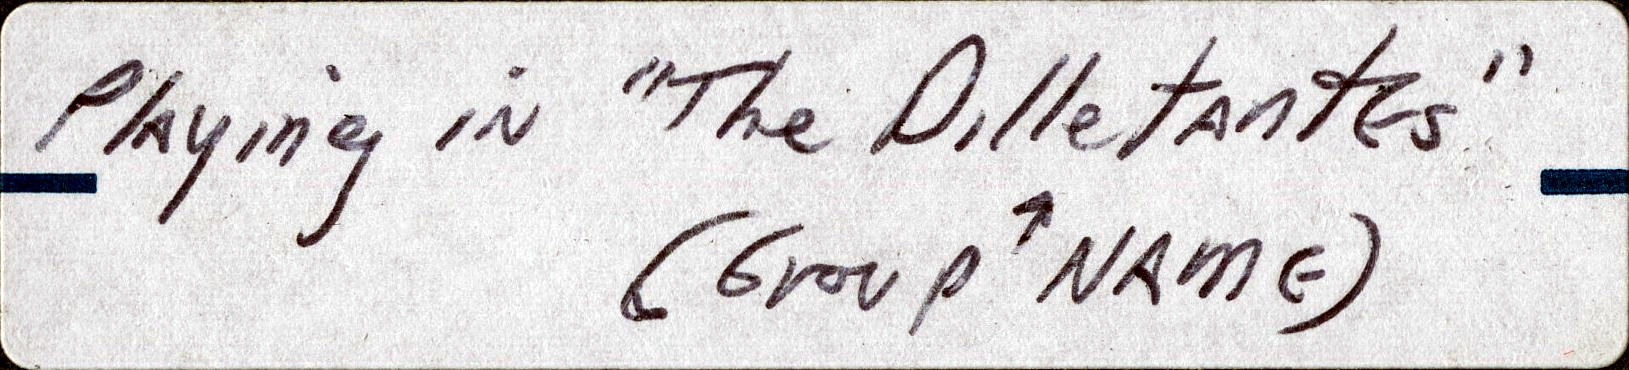 Playing in "The Dilletantes"
(Group ↑ NAME)